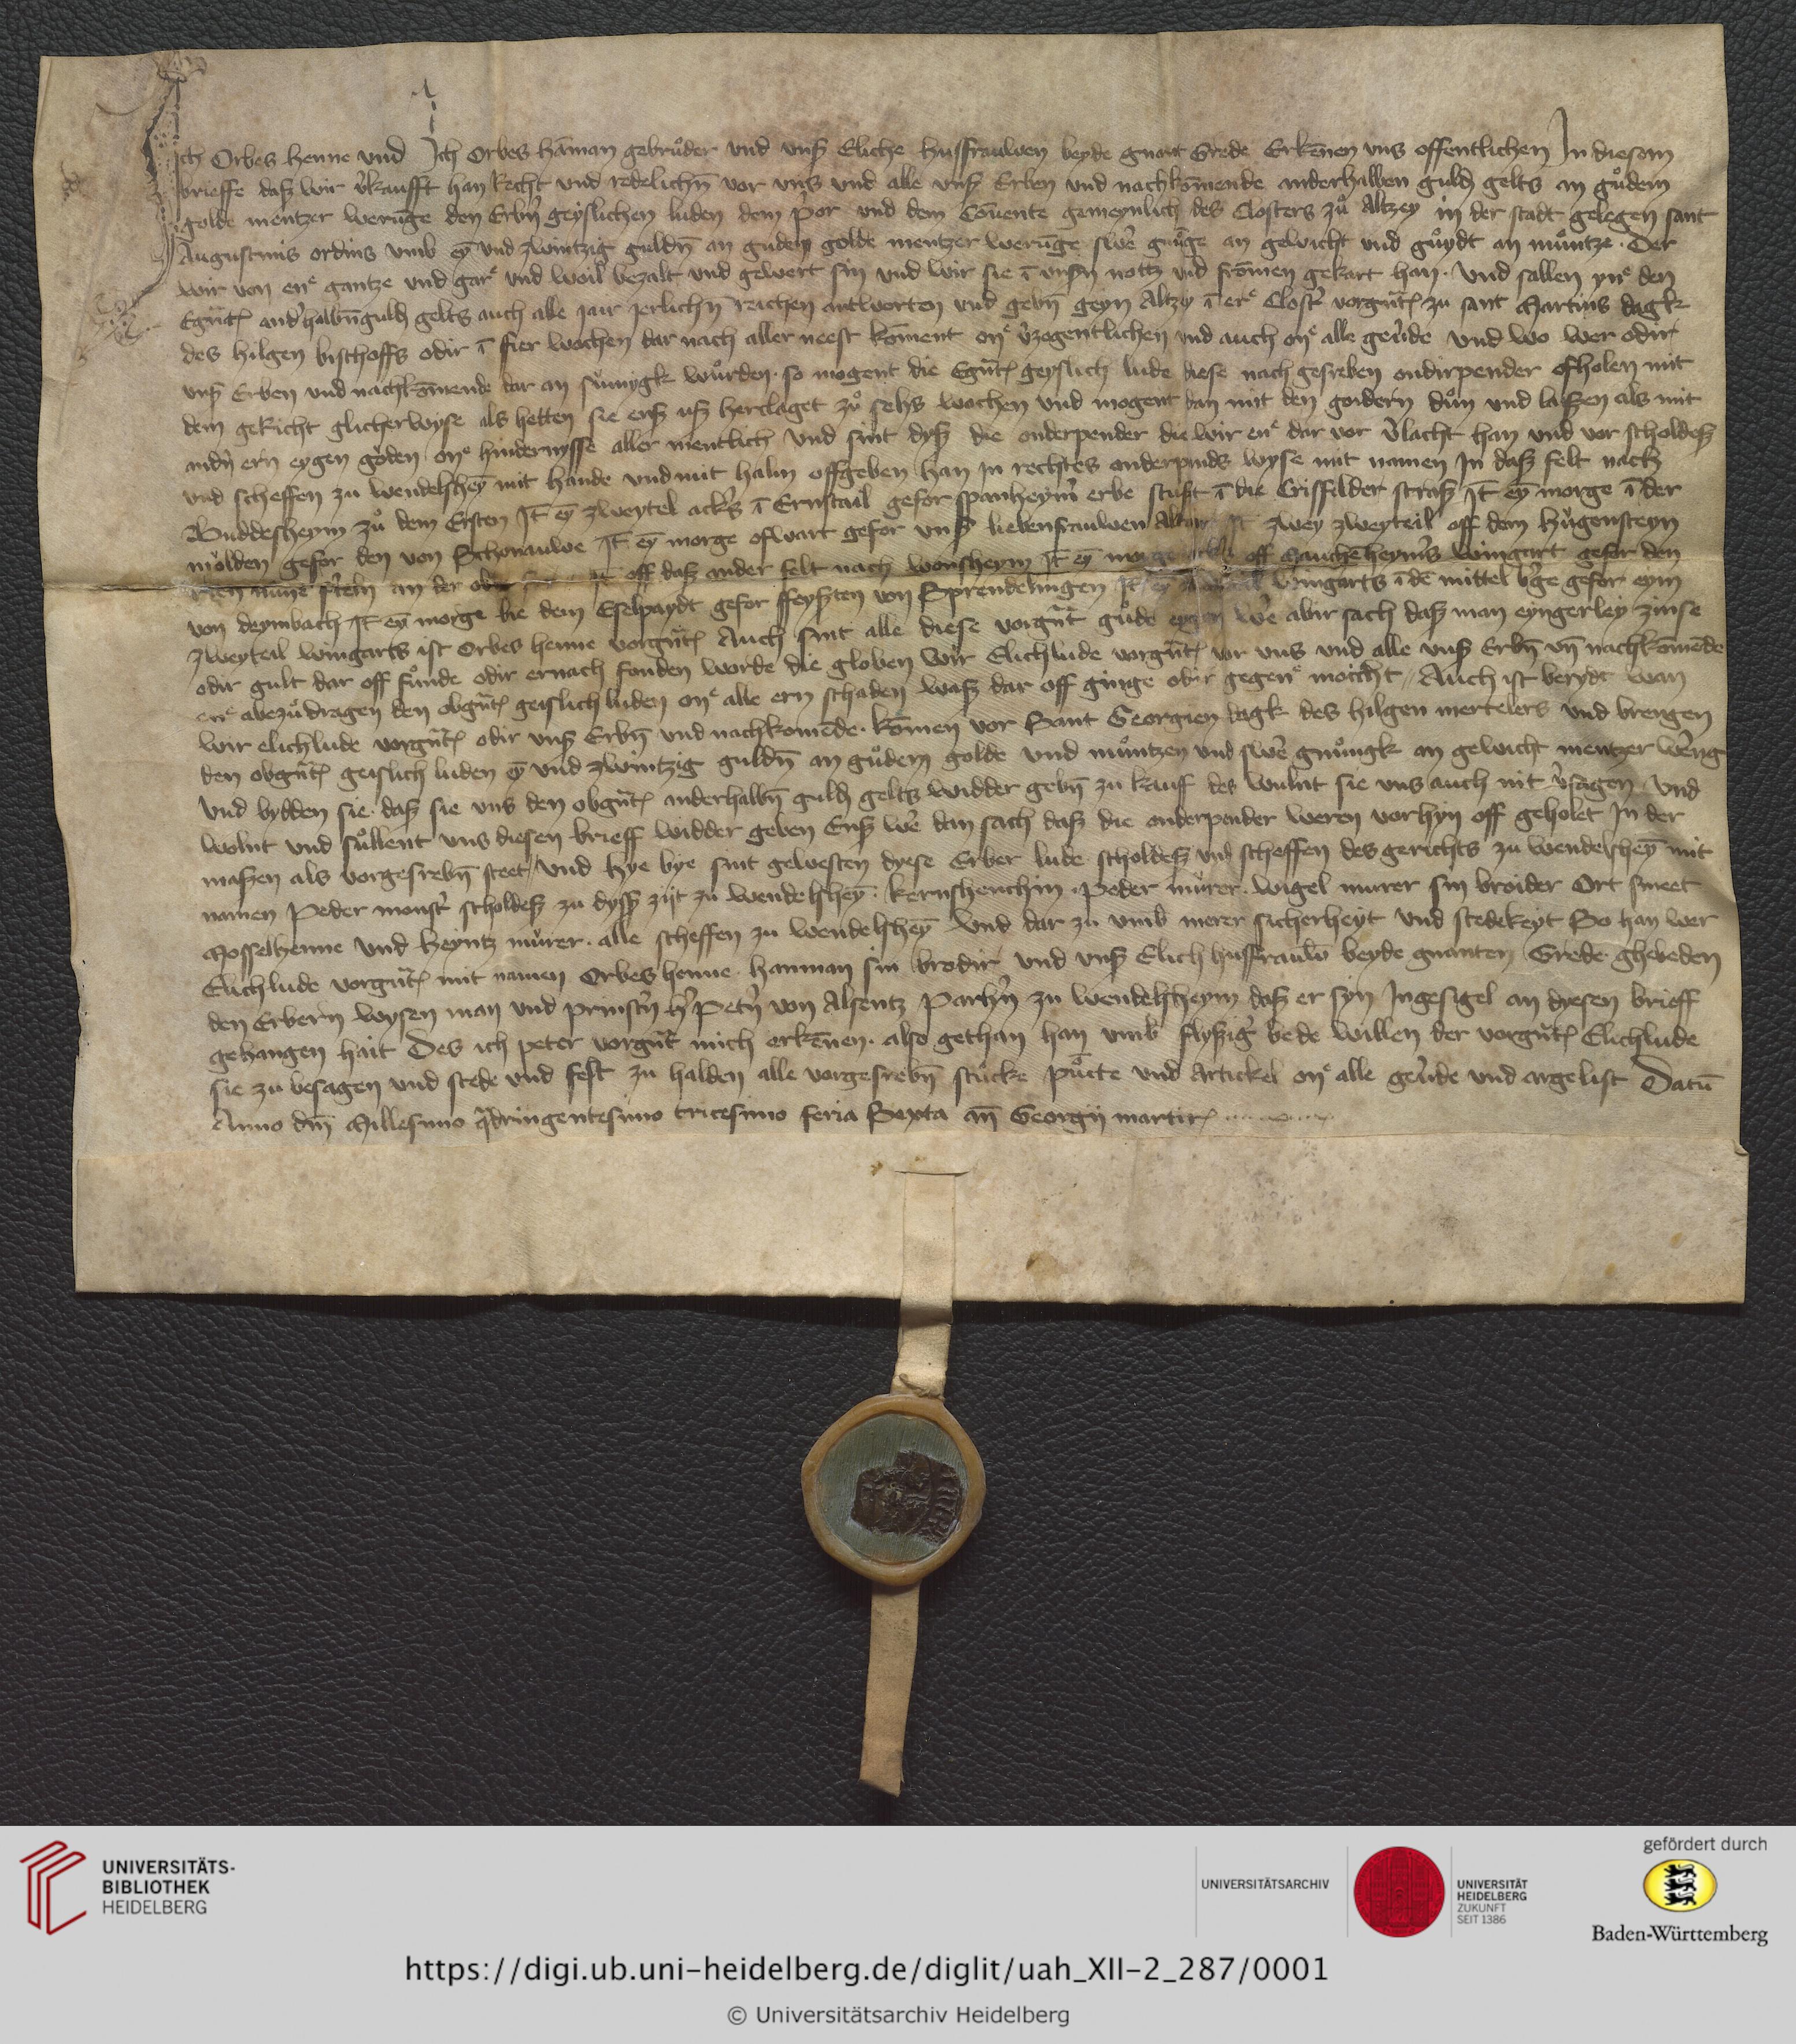 Ich Orbes Henne und Ich Orbes Hāman gebruͦder und unß Eliche Hußfrauwen beyde gnant Grede Erkēnen uns offentlichen In diesem
brieffe daß wir v̉kaufft han Recht und redelichn̄ vor uns und alle unß Erben und nachkōmende anderhalben guld gelts an guͦdem
golde mentzer werūge den Erbn̉ geyslichen luden dem p̉or und dem Cōuente gemeynlich des Closters zuͦ Altzey in der stadt gelegen sant
Augustinis ordins umb eȳ und zwintzig guldn̄ an gudem golde mentzer werūge swē gnuͦge an gewicht und guͦydt an muͦntze. Der
wir von enᵉ gantze und garᵉ und woil bezalt und gewert sin und wir sie ī unßn nottz und frōmen gekart han. Und sallen ynᵉ den
Egn̄t and̉halbn̄ guld gelts auch alle jair jerlichn̄ reichen antworten und gebn̄ geyn Altzy ī erᵉ Clost̉ vorgn̄t zu sant Martins dagk
des hilgen bisthoffs odir ī fier wochen dar nach aller neest kōment onᵉ v̉zogentlichen und auch onᵉ alle gev̉de und wo wer odir
unß Erben und nachkōmende dar an suͦmygk wuͦrden. so mogent die Egn̄t geyslich lude diese nach gesreben ondirpender ofholen mit
dem gericht glicherwyse als hetten sie erß uß herclaget zuͦ sehs wochen und mogent dan mit den goidern duͦn und laßen als mit
andn̉ ern eygen goden onᵉ hindernysse aller mentlich und sint dyß die onderpender die wir enᵉ dar vor v̉lacht han und vor scholdeß
und scheffen zu wendelsheȳ mit hande und mit halm offgeben han in rechtes onderpands wyse mit namen In daß felt nach
Buddesheym zuͦ dem Ersten It̄ eȳ zweytel ack̉s ī Ernstail gefor spanheym̉ erbe stust ī die Crisfilder straß It̄ eȳ morge ī der
muͦlden gefor den von Schonauwe It̄ eȳ morge ofwart gefor unß liebenfrauwen Altar It̄ zwey zweyteil off dem Huͦgensteyn
an der It̄ off daß ander felt nach wonsheym It̄ eȳ off wingart gefor den
von deymbach It̄ eȳ morge bie dem Eselpaydt gefor ffeyßten von Sprendelingen It̄ wingarts ī dē mittel b̉ge gefor eym
zweyteil wingarts ist Orbes henne vorgn̄t Auch sint alle diese vorgn̄t guͦde eygen wē abir sach daß man eyngerley zinse
odir gult dar off fuͦnde odir ernach fonden worde die globen wir Elichlude vorgn̄t vor uns und alle unß Erbn̄ un̄ nachkōmēde
enᵉ abezuͦdragen den obgn̄t geislich luden onᵉ alle ern schaden waß dar off ginge obir gegenᵉ moicht, Auch ist berydt wan
wir elichlude vorgn̄t odir unß Erbn̄ und nachkomēde. kōmen vor Sant Georgien dagk des hilgen mertelers und brengen
den obgn̄t geislich luden eȳ und zwintzig guldn̄ an guͦdem golde und muͦntzen und swē gnuͦngk an gewicht mentzer wēng
und bydden sie. daß sie uns den obgn̄t anderhalbn̄ guld gelts widder gebn̄ zu kauff des wulnt sie uns auch nit v̉sagen. Und
wolnt und suͦllent uns diesen brieff widder geben Enß wē dan sach daß die onderpender weren vorhyn off geholet In der
maßen als vorgesrebn̄ steet, Und hye bye sint gewesten dyese Erber lude scholdeß und scheffen des gerichts zu wendelsheȳ mit
namen Peder monst̉ scholdeß zu dysß zijt zu wendelsheȳ. kernshenchin. Peder muͦrer. wigel murer sin broider Ort smeet
Mosselhenne und Heyntz muͦrer. alle scheffen zu wendelsheȳ Und dar zu umb merer sicherheyt und stedekeyt So han wer
Elichlude vorgn̄t mit namen Orbes henne. Hanman sin brodir und unß Elich Hußfrauw̄ beyde gnanten Grede. ghebeden
den Erbern wysen man und prinst̉n h̉n Petn̉ von Alsentz Parh̉n zu wendelsheym daß er syn Ingesigel an dyesen brieff
gehangen hait Des ich peter vorgn̄t mich erkēnen. also gethan han umb flyßig̉ bede willen der vorgn̄t Elichlude
sie zu besagen und stede und fest zu halden alle vorgesrebn̄ stuͦcke puͦcte und Artickel onᵉ alle gev̉de und argelist Datū
Anno dn̄i Millesimo q̄dringentesimo tricesimo feria Sexta an̄ Georgij martir
UNIVERSITÄTS-
BIBLIOTHEK
HEIDELBERG
UNIVERSITÄTSARCHIV
UNIVERSITÄT
HEIDELBERG
ZUKUNFT
SEIT 1386
gefördert durch
Baden-Württemberg
https://digi.ub.uni-heidelberg.de/diglit/uah_XII-2_287/0001
© Universitätsarchiv Heidelberg